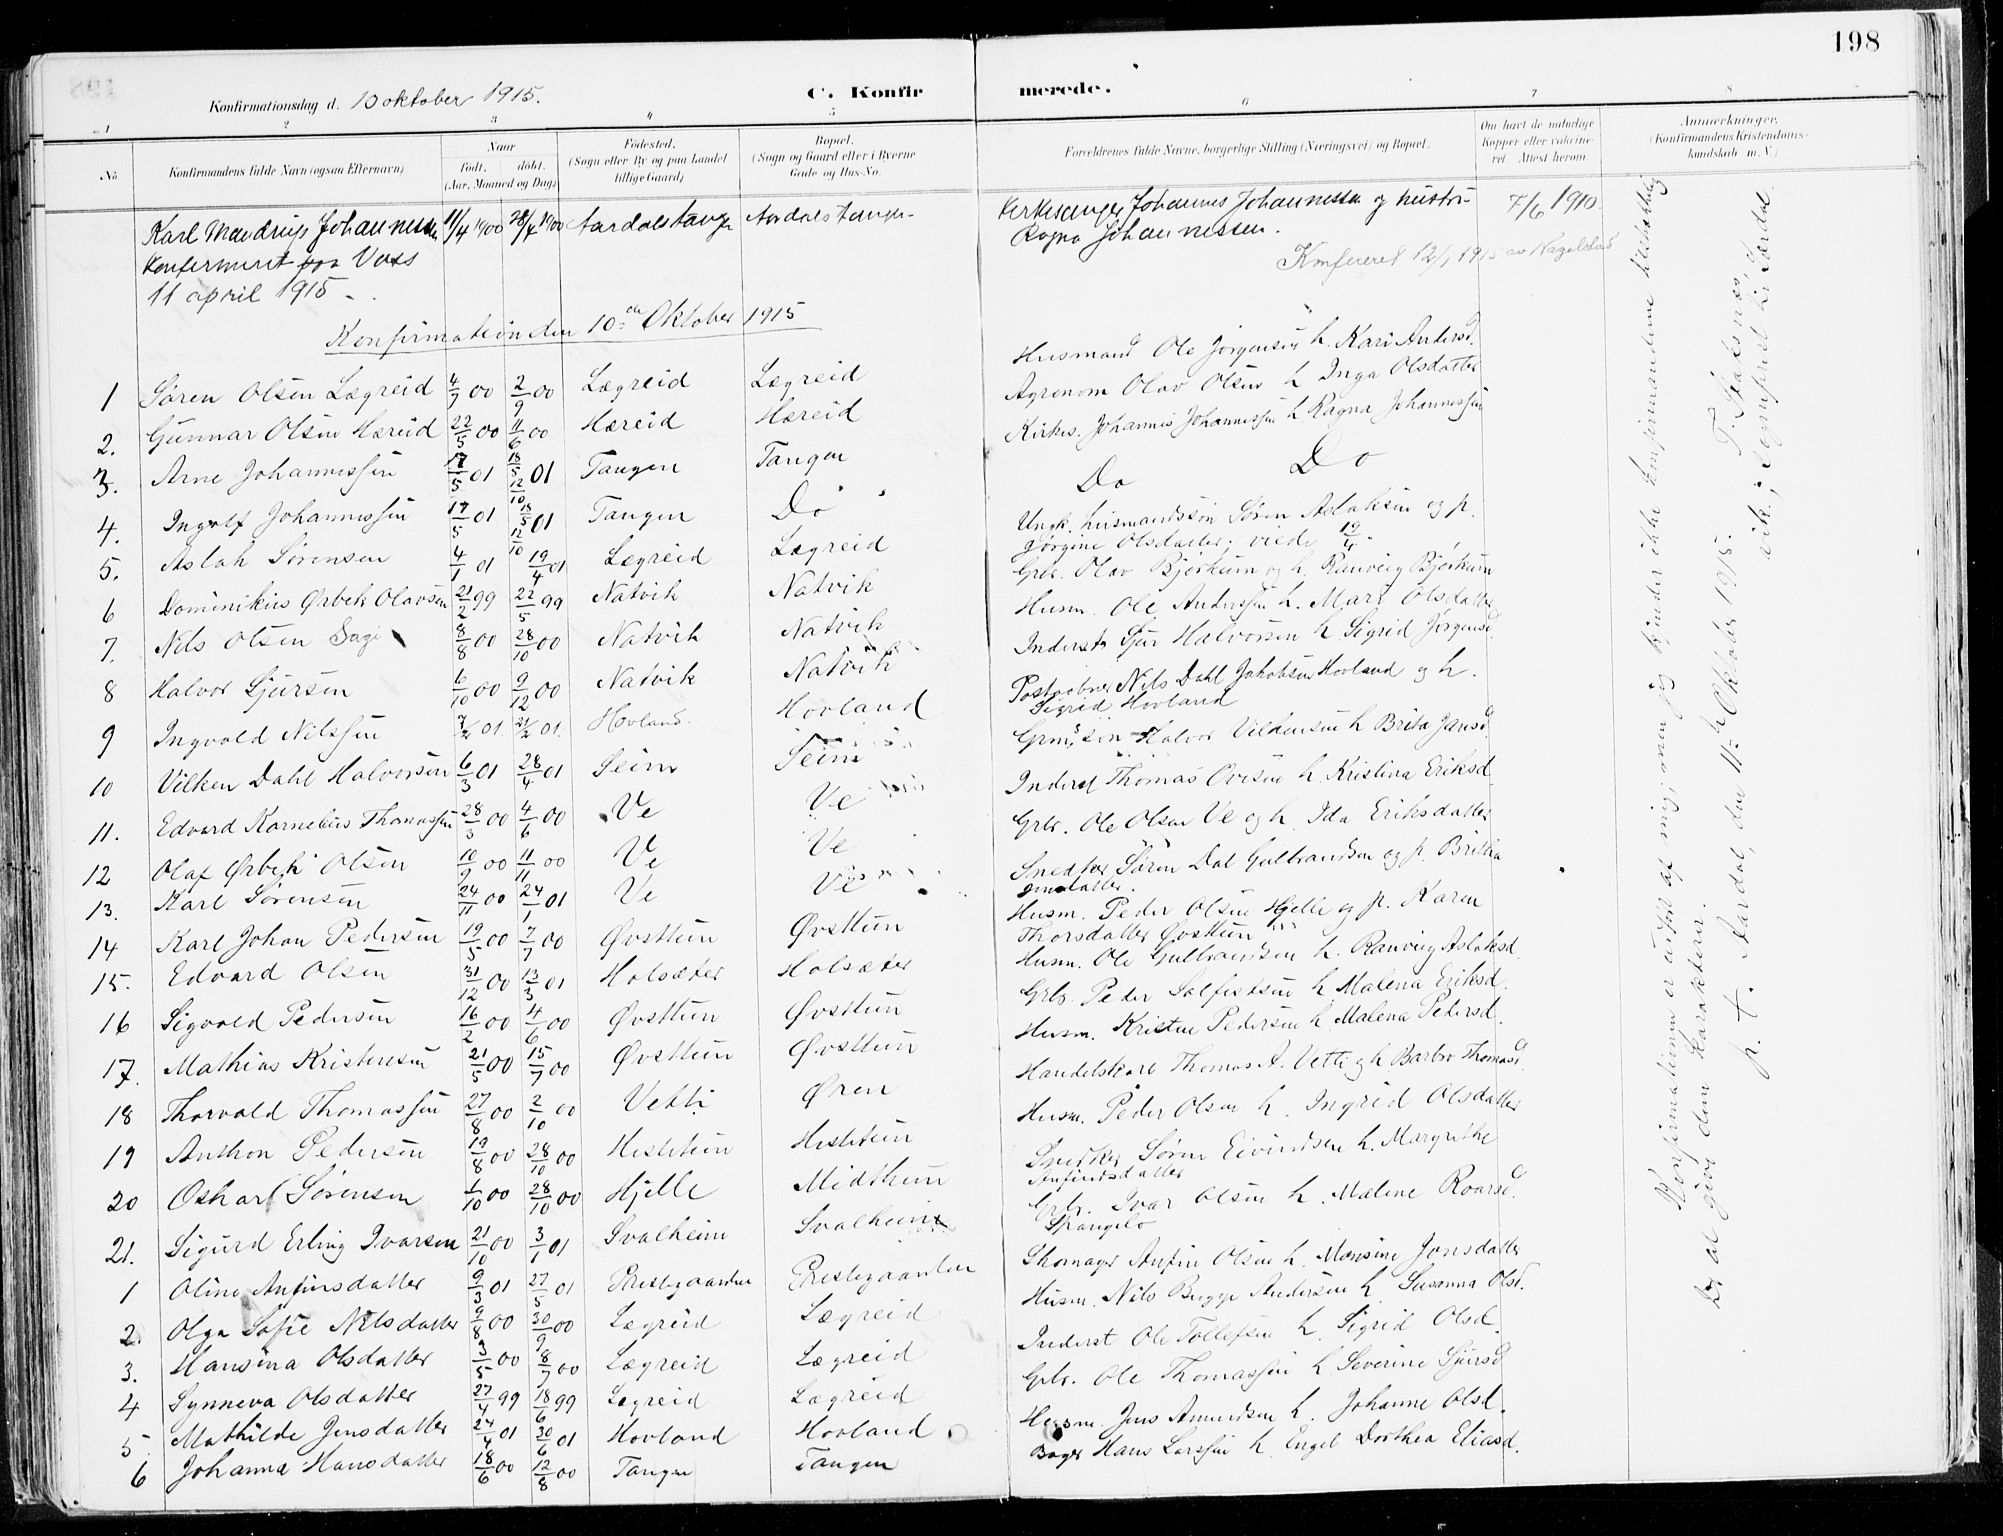 198
Konfirmationsdag d. 10 oktober 1915. C. Konfirmerede.
1 2 3 4 5 6 7 8
No Konfirmandens fulde Navn (ogsaa Efternavn) Naar født. døbt. (Aar, Maaned og Dag) Fødested. (Sogn eller By og paa Landet tillige Gaard) Bopæl. (Sogn og Gaard eller i Byerne Gade og Hus-No. Forældrenes fulde Navne, borgerlige Stilling (Næringsvei) og Bopæl. Om havt de naturlige Kopper eller vakcineret Attest herom. Anmærkninger. (Konfirmandens Kristendomskundskab m. V.)
Karl Mandrup Johannessen 11/4 1900 28/4 1900 Aardalstangen Aardalstangen Kirkesanger Johannes Johannessen og hustru 7/6 1910.
Konfirmeret paa Voss Ragna Johannessen.
11 april 1915. Konfereret 12/1 1915 av
Konfirmation den 10de Oktober 1915
1 Søren Olsen Lægreid 4/7 00 2/9 00 Lægreid Lægreid Husmand Ole Jørgensen h. Kari Andersd.
2. Gunnar Olsen Hæreid 22/5 00 11/6 00 Hæreid Hæreid Agronom Olav Olsen h Inga Olsdatter
3. Arne Johannessen 17/5 01 18/5 12/10 01 Tangen Tangen Kirkes. Johannes Johannessen h Ragna Johannessen
4. Ingolf Johannessen 17/5 01 18/5 12/10 01 Tangen Do Do Do
5. Aslak Sørensen 4/1 01 19/4 01 Lægreid Lægreid Ungk. husmandssøn Søren Aslaksen og p.
Jørgine Olsdatter; viede 19/4.
6 Dominikus Ørbek Olavsen 21/2 99 22/5 99 Natvik Natvik Grbr. Olav Bjørkum og h. Ranveig Bjørkum
7. Nils Olsen Sagi 8/8 00 28/10 00 Natvik Natvik Husm. Ole Anderssen h. Mari Olsdatter
8 Halvor Sjursen 6/10 00 9/12 00 Natvik Natvik Inderst Sjur Halvorsen h. Sigrid Jørgensd
9 Ingvald Nilssen 7/2 01 21/2 01 Hovland Hovland Postaabner Nils Dahl Jakobsen Hovland og h.
Sigrid Hovland
10 Vilken Dahl Halvorsen 6/3 01 28/4 01 Seim Seim Grms søn Halvor Vilkensen h Brita Jansd
11. Edvard Kornelius Thomassen 28/3 00 4/6 00 Ve Ve Inderst Thomas Ovesen h. Kristina Eriksd
12 Olaf Ørbek Olsen 10/9 00 11/11 00 Ve Ve Grbr. Ole Olsen Ve og h. Ida Eriksdatter
13. Karl Sørensen 24/11 00 24/1 01 Ve Ve Snedker Søren Dal Gulbrandsen og p. Britha
14 Karl Johan Pedersen 19/5 00 7/7 00 Øvsttun Øvsttun Husm. Peder Olsen Hjelle og p. Karen
Thorsdatter Øvsttun
15. Edvard Olsen 31/12 00 13/3 01 Holsæter Holsæter Husm. Ole Gulbrandsen h. Ranveig Aslaksd.
16 Sigvald Pedersen 16/2 00 4/6 00 Øvsttun Øvsttun Grbr. Peder Solfestsen h Malena Eriksd.
17. Mathias Kristensen 21/5 00 15/7 00 Øvsttun Øvsttun Husm. Kristen Pedersen h Malena Pedersd.
18 Thorvald Thomassen 27/8 00 2/10 00 Vetti Øren Handelskarl Thomas A. Vetti og h Barbro Thomasd.
19 Anthon Pedersen 19/8 00 28/10 00 Hestetun Hestetun Husm. Peder Olsen h. Ingrid Olsdatter
20 Oskar Sørensen 1/10 00 28/10 00 Hjelle Midttun Snedker Søren Eivindsen h. Margrethe
Anfindsdatter
21. Sigurd Erling Ivarsen 21/10 00 3/1 01 Svalheim Svalheim Grbr. Ivar Olsen h. Malene Roarsd.
Spangelo
1 Oline Anfinsdatter 9/3 01 27/5 01 Prestegaarden Prestegaarden Skomager Anfin Olsen h. Monsine Jonsdatter
2. Olga Sofie Nilsdatter 9/8 00 30/9 00 Lægreid Lægreid Husm. Nils Bugge Andersen h Susanna Olsd.
3. Hansina Olsdatter 3/5 00 8/7 00 Lægreid Lægreid Inderst Ole Tollefsen h. Sigrid Olsd.
4 Synneva Olsdatter 27/4 99 18/6 99 Lægreid Lægreid Grbr. Ole Thomassen h. Severine Sjursd
5. Mathilde Jensdatter 24/4 01 30/6 01 Hovland Hovland Husm. Jens Amundsen h. Johanne Olsd.
6 Johanna Hansdatter 18/6 00 12/8 00 Tangen Tangen Bager Hans Larssen h. Engel Dorthea Eliasd.
Konfirmationen er utført af mig; men jeg kjender ikke konfirmanderne tilstrækkelig
til at give dem karakterer.
p. t. Aardal, den 11te Oktober 1915.
sogneprest til Aardal